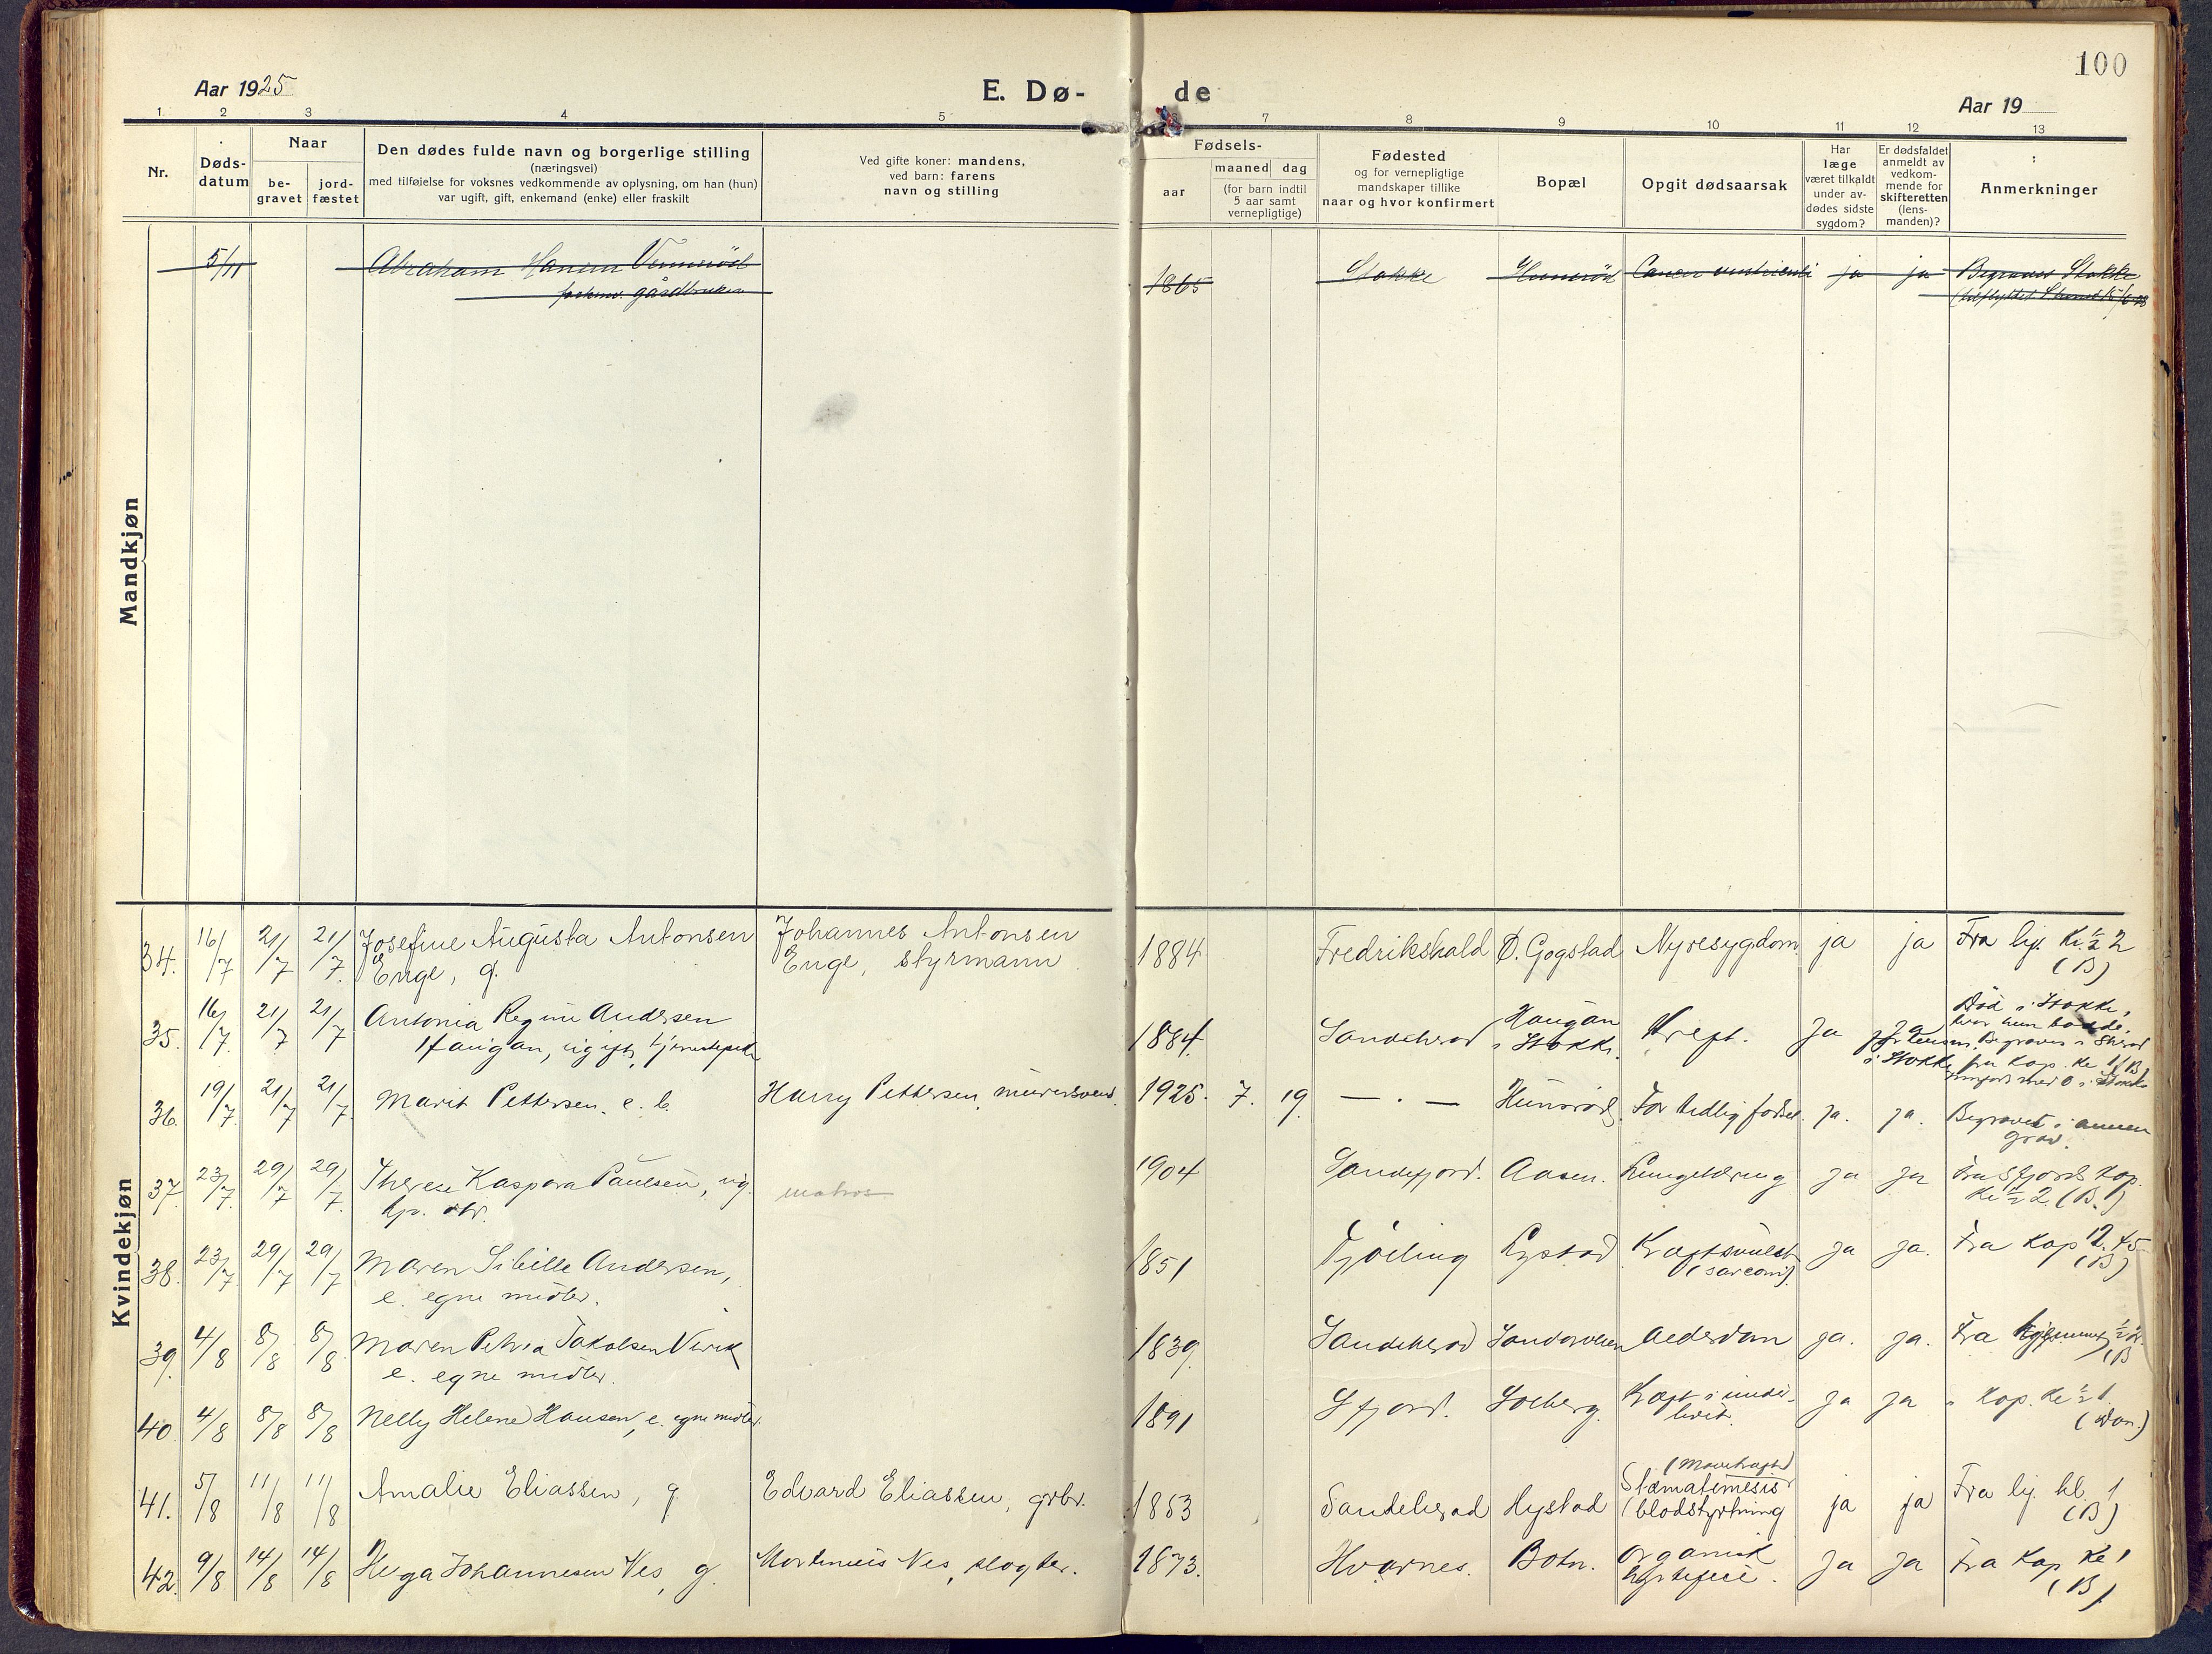 100
Aar 1925
E. Dø-
de
Aar 19
1 2 3 4 5 7 8 9 10 11 12 13
Nr.
Døds-
datum
Naar
be-
gravet
jord-
fæstet
Den dødes fulde navn og borgerlige stilling
(næringsvei)
med tilføielse for voksnes vedkommende av oplysning, om han (hun)
var ugift, gift, enkemand (enke) eller fraskilt
Ved gifte koner: mandens,
ved barn: farens
navn og stilling
Fødsels-
aar
maaned dag
(for barn indtil
5 aar samt
vernepligtige)
Fødested
og for vernepligtige
mandskaper tillike
naar og hvor konfirmert
Bopæl
Opgit dødsaarsak
Har
læge
været tilkaldt
under av-
dødes sidste
sygdom?
Er dødsfaldet
anmeldt av
vedkom-
mende for
skifteretten
(lens-
manden)?
Anmerkninger
Mandkjøn
5/11 Abraham Hansen 1865 Stokke Cancer ventriculi ja ja Begraves Stokke
gårdbruker
Kvindekjøn
34. 16/7 21/7 21/7 Josefine Augusta Antonsen Johannes Antonsen 1884 Fredrikshald Ø. Gogstad Nyresygdom ja ja Fra lig. Ke. ½ 2
Enge, g. Enge, styrmann (B)
35. 16/7 21/7 21/7 Antonia Regine Andersen 1884 Sandeherad Haugan Kreft. Ja ja Død i Stokke,
Haugan, ugift, tjenestepike i Stokke. hvor hun bodde.
i Stokke fra Kap. Ke 1 (B)
36. 19/7 21/7 21/7 Marit Pettersen. e. b. Harry Pettersen, murersvend. 1925. 7. 19. — . — Hunsrød For tidlig fødsel. ja. ja. Begravet i annen
grav.
37. 23/7 29/7 29/7 Therese Kaspara Paulsen, ug. matros 1904 Sandefjord. Aasen. Lungetæring ja ja Fra Sfjords kap.
hp. dtr. Ke ½ 2. (B.)
38. 23/7 29/7 29/7 Maren Sibille Andersen, 1851 Tjølling Lystad Kræftsvulst ja ja. Fra Kap 12. 45
e. egne midler. (sarcom) (B)
39. 4/8 8/8 8/8 Maren Petrea Jakobsen Virik 1839 Sandeherad Sandarveien Alderdom ja. ja. Fra
e. egne midler. (B
40. 4/8 8/8 8/8 Nelly Helene Hansen, e. egne midler. 1891 Sfjord. Solberg. Kræft i under- ja ja " Kap. Ke ½ 1.
livet.
41. 5/8 11/8 11/8 Amalie Eliassen, g. Edvard Eliassen, grbr. 1853 Sandeherad Nystad Hæmatemesis ja ja Fra lig. kl. 1
(blodstyrtning (B)
42. 9/8 14/8 14/8 Helga Johannesen Nes, g. Martinius Nes, slagter. 1873. Hvarnes. Botn. Organisk ja ja Fra Kap Ke 1
hjertefeil. (B)